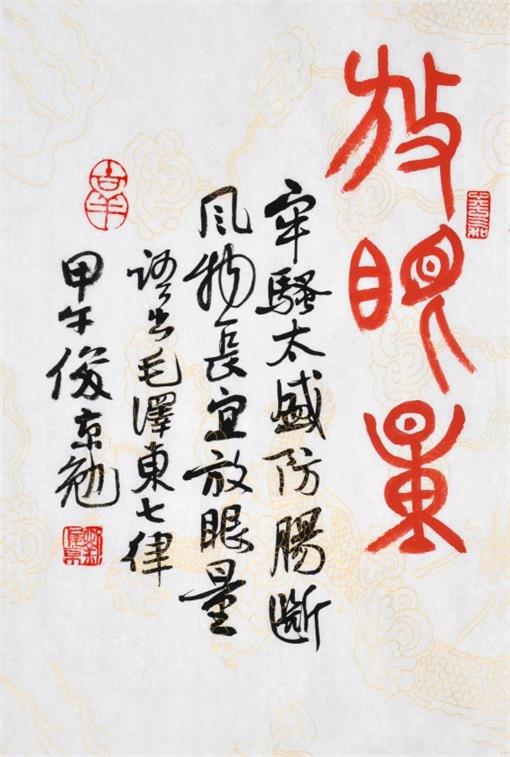 放眼量
牢騷太盛防腸斷
風物長宜放眼量
語出毛澤東七律
甲午俊京勉
吉羊